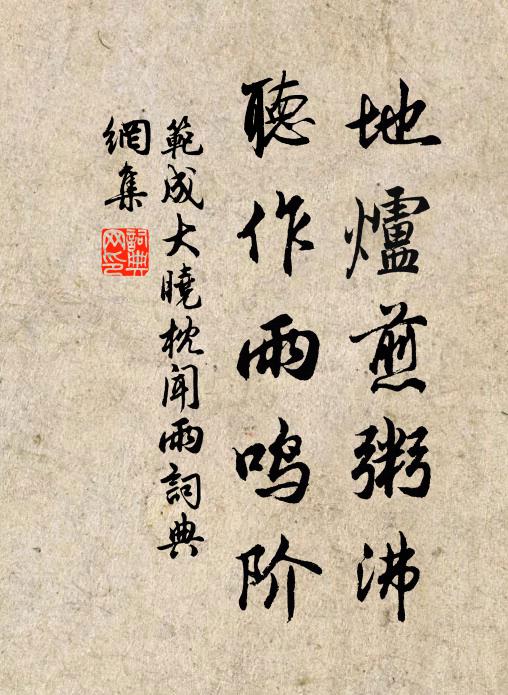 地爐煎粥沸
聽作雨鸣阶
範成大曉枕闻雨詞典
網集
詞典
网印